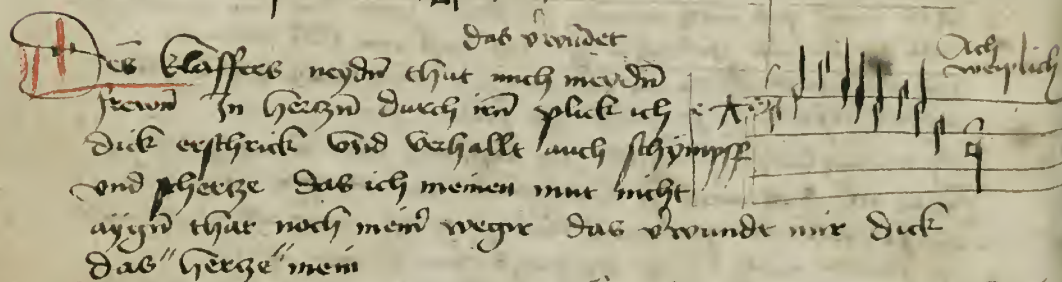 das v̄wūdet
Des klaffers neydn̄ thut mich meydn̄
frewn̄ In hertzn̄ durch irn̄ plick ich
dick erschrick vnd verhallt auch schympff
vnd schertze das ich meinen mut nicht
aygn̄ thar noch mein̄ weger das v̄wundt mir dick
das hertze mein
Ach
weiplich